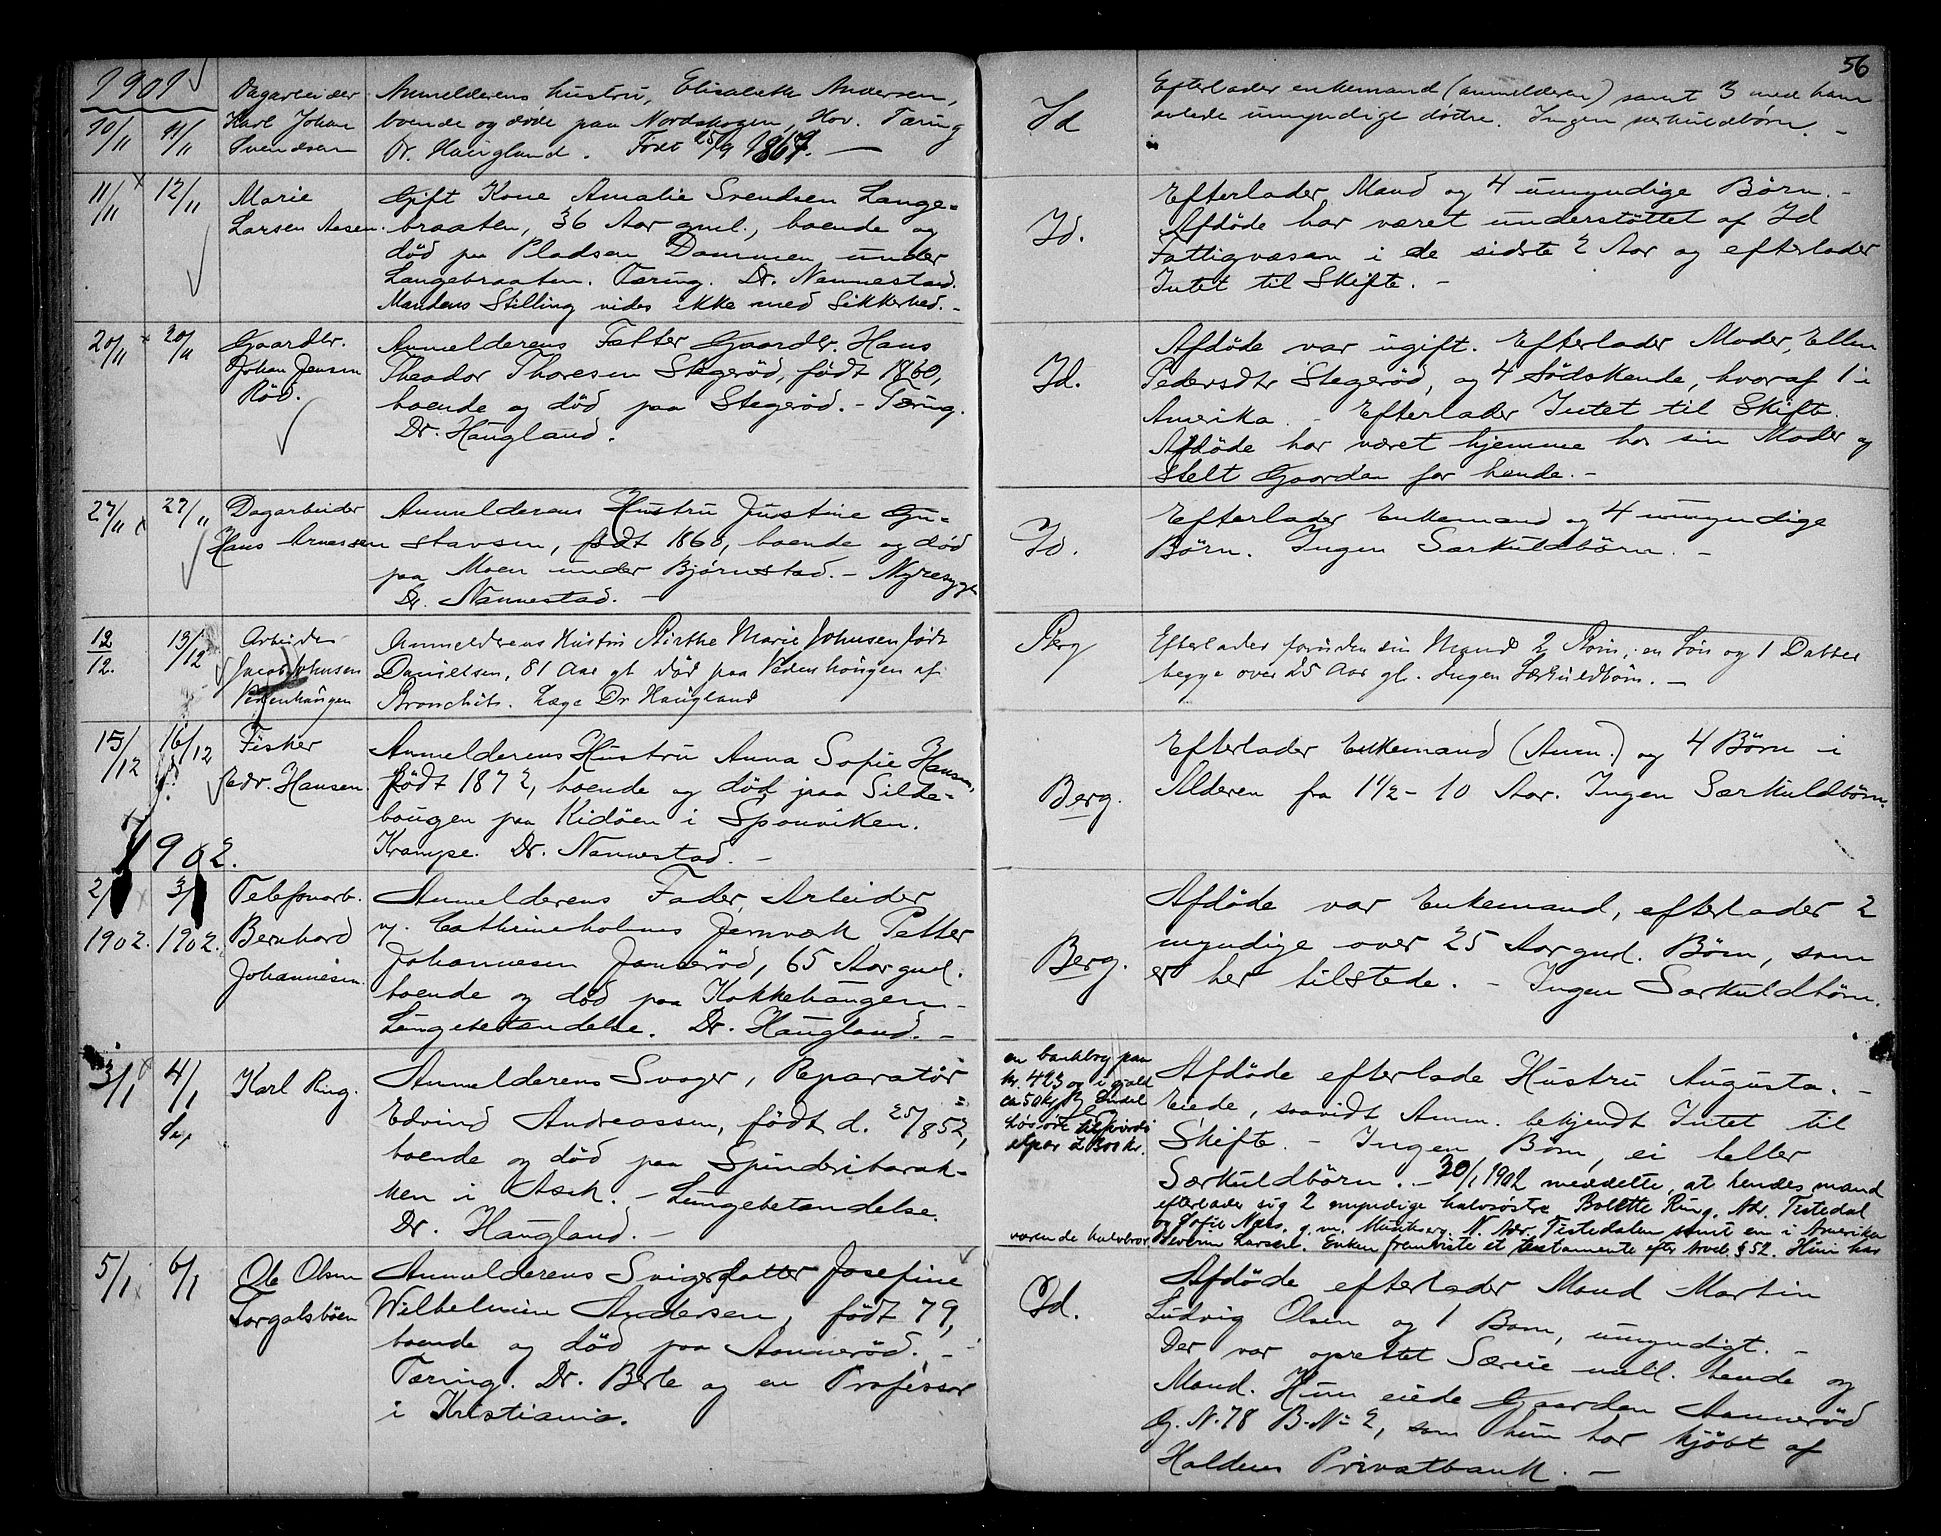 56
1901
10/11 11/11
Dagarbeider
Karl Johan
Svendsen
Anmelderens hustru, Elisabeth Andersen,
boende og døde paa Nordskogen, Hov. Tæring
Dr. Haugland. Født 25/9 1867. —
Id
Efterlader enkemand (anmelderen) samt 3 med ham
avlede umyndige døttre. Ingen særkuldbørn. —
11/11 12/11
Marie
Larsen Aasen.
Gift Kone Amalie Svendsen Lange=
braaten, 36 Aar gml., boende og
død paa Pladsen Dammen under
Langebraaten. Tæring. Dr. Nannestad.
Mandens Stilling vides ikke med Sikkerhed. -
Id.
Efterlader Mand og 4 umyndige Børn. -
Afdøde har været understøttet af Id
Fattigvæsen i de sidste 2 Aar og efterlader
Intet til Skifte. -
20/11 20/11
Gaardbr.
Johan Jensen
Röd.
Anmelderens Fætter Gaardbr. Hans
Theodor Thoresen Stegeröd, født 1860,
boende og död paa Stegeröd. - Tæring.
Dr. Haugland.
Id.
Afdøde var ugift. Efterlader Moder, Ellen
Pedersdtr Stegeröd, og 4 Södskende, hvoraf 1 i
Amerika. - Efterlader Intet til Skifte.
Afdöde har været hjemme hos sin Moder og
stelt Gaarden for hende. -
27/11 27/11
Dagarbeider
Hans Arnessen
Anmelderens Hustru Justine Gu=
stavsen, født 1860, boende og död
paa Moen under Bjørnstad. - Nyresyge
Dr. Nannestad. -
Id.
Efterlader Enkemand og 4 umyndige
Børn. Ingen Særkuldbörn. -
12/12. 13/12
Arbeider
Jacob Johnsen
Vedenhaugen
Anmelderens Hustru Birthe Marie Johnsen født
Danielsen, 81 Aar gl død paa Vedenhaugen af
Bronchit. Læge Dr Haugland
Berg
Efterlader foruden sin Mand 2 Børn, en Søn og 1 Datter
begge over 25 Aar gl. Ingen Særkuldbørn. —
15/12 16/12
Fisker
Edv. Hansen
Anmelderens Hustru Anna Sofie Hansen,
født 1872, boende og död paa Silde=
baugen paa Kidöen i Sponviken.
Krampe. Dr. Nannestad. -
Berg.
Efterlader Enkemand (Anm.) og 4 Børn i
Alderen fra 1 1/2 - 10 Aar. Ingen Særkuldbörn.
1902.
2/1 1902. 3/1 1902.
Telefonarb.
Bernhard
Johannesen.
Anmelderens Fader, Arbeider
v. Cathrineholms Jernværk Petter
Johannesen Jansröd, 65 Aar gml.
boende og död paa Kokkehaugen. -
Lungebetændelse. Dr. Haugland. -
Berg.
Afdöde var Enkemand, efterlader 2
myndige over 25 Aar gml. Børn, som
er her tilstede. - Ingen Særkuldbörn.
3/1 4/1
Karl Ring.
Anmelderens Svoger, Reparatör
Edvind Andreassen, født d. 25/2 852,
boende og död paa Spinderibarak-
ken i Asak. - Lungebetændelse.
Dr. Haugland. -
en bankbog paa
kr. 423 og i gjæld
ca 50 kr. Endel
Afdöde efterlade Hustru Augusta. -
Eiede, saavidt Anm. bekjendt Intet til
Skifte. - Ingen Børn, ei heller
Særkuldbörn. - 30/1 1902 meddelte, at hendes mand
efterlader sig 2 myndige halvsøstre Bolette Ring, Adr. Tistedal
og Sofie Næs, g. m. N. Adr. Tistedalen samt en i Amerika
værende halvbror Severin Larsen. Enken fremviste et testamente efter Arvel. § 52. Hun har
5/1 6/1
Ole Olsen
Torgalsböen
Anmelderens Svigerdatter Josefine
Wilhelmine Andersen, födt 79,
boende og död paa Aanneröd. -
Tæring. Dr. Berle og en Professor
i Kristiania.
Id.
Afdöde efterlader Mand Martin
Ludvig Olsen og 1 Barn, umyndigt. -
Der var oprettet Særeie mell. hende og
Mand. Hun eiede Gaarden Aannerød
G. N. 78 B. No 2, som hun har kjöbt af
Haldens Privatbank. -